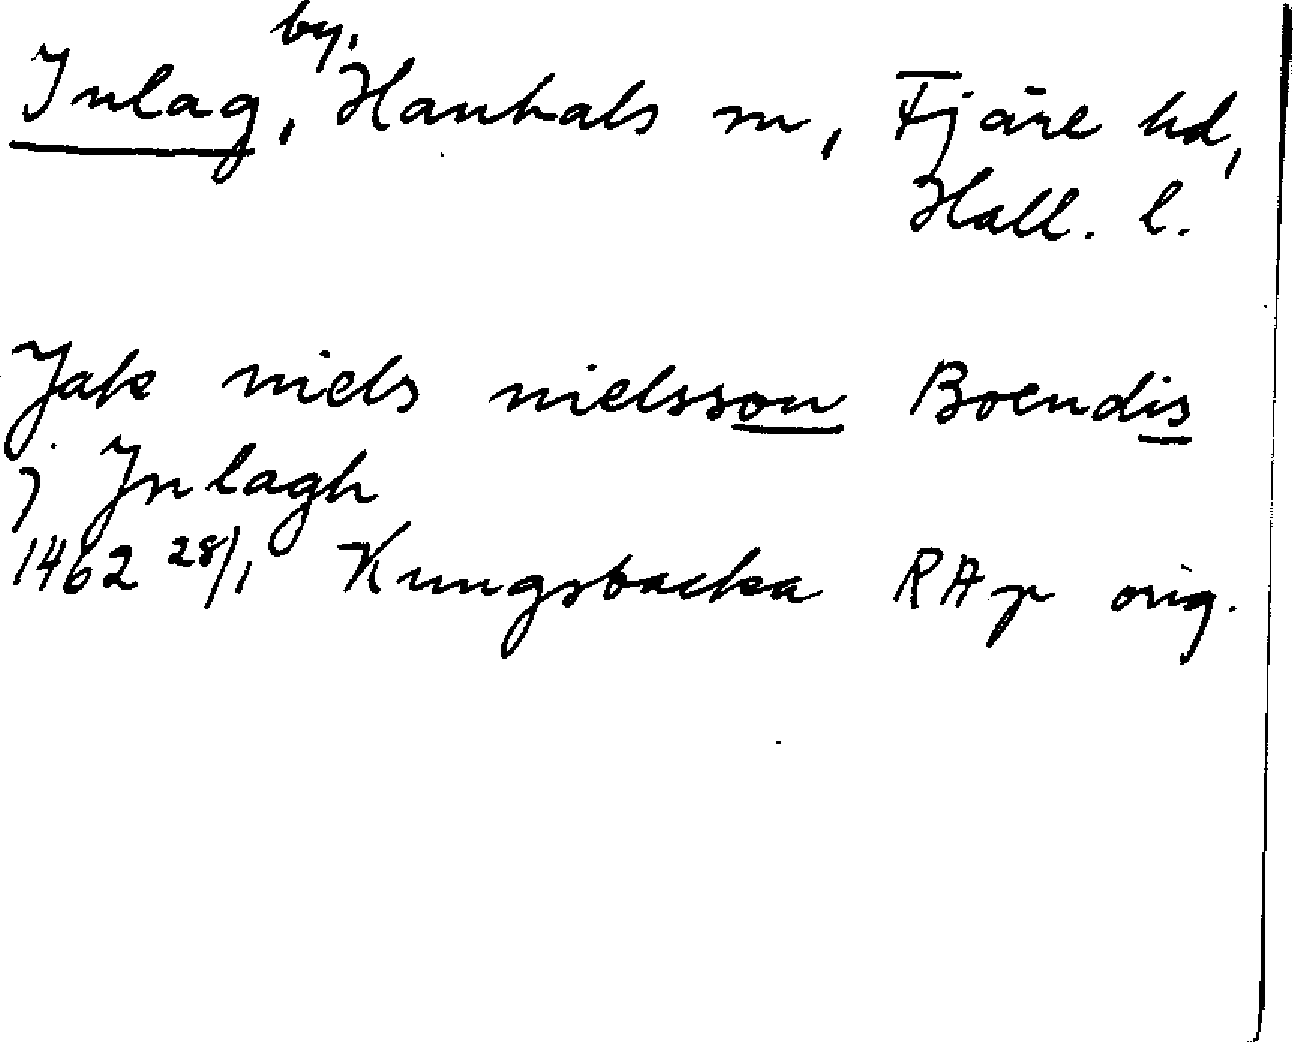 Inlag, by, Hanhals sn, Fjäre hd,
Hall. l.
Jak niels nielsson Boendis
j Jnlagh
1462 28/1 Kungsbacka RAp orig.